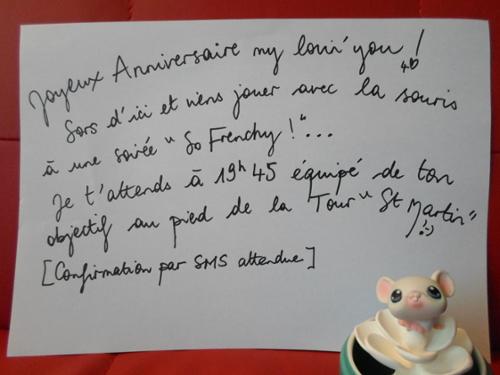 Joyeux Anniversaire my loui'you !
Sors d'ici et viens jouer avec la souris
à une soirée " So Frenchy ! "...
Je t'attends à 19h45 équipé de ton
objectif au pied de la Tour " St Martin "
:-)
[Confirmation par SMS attendue]